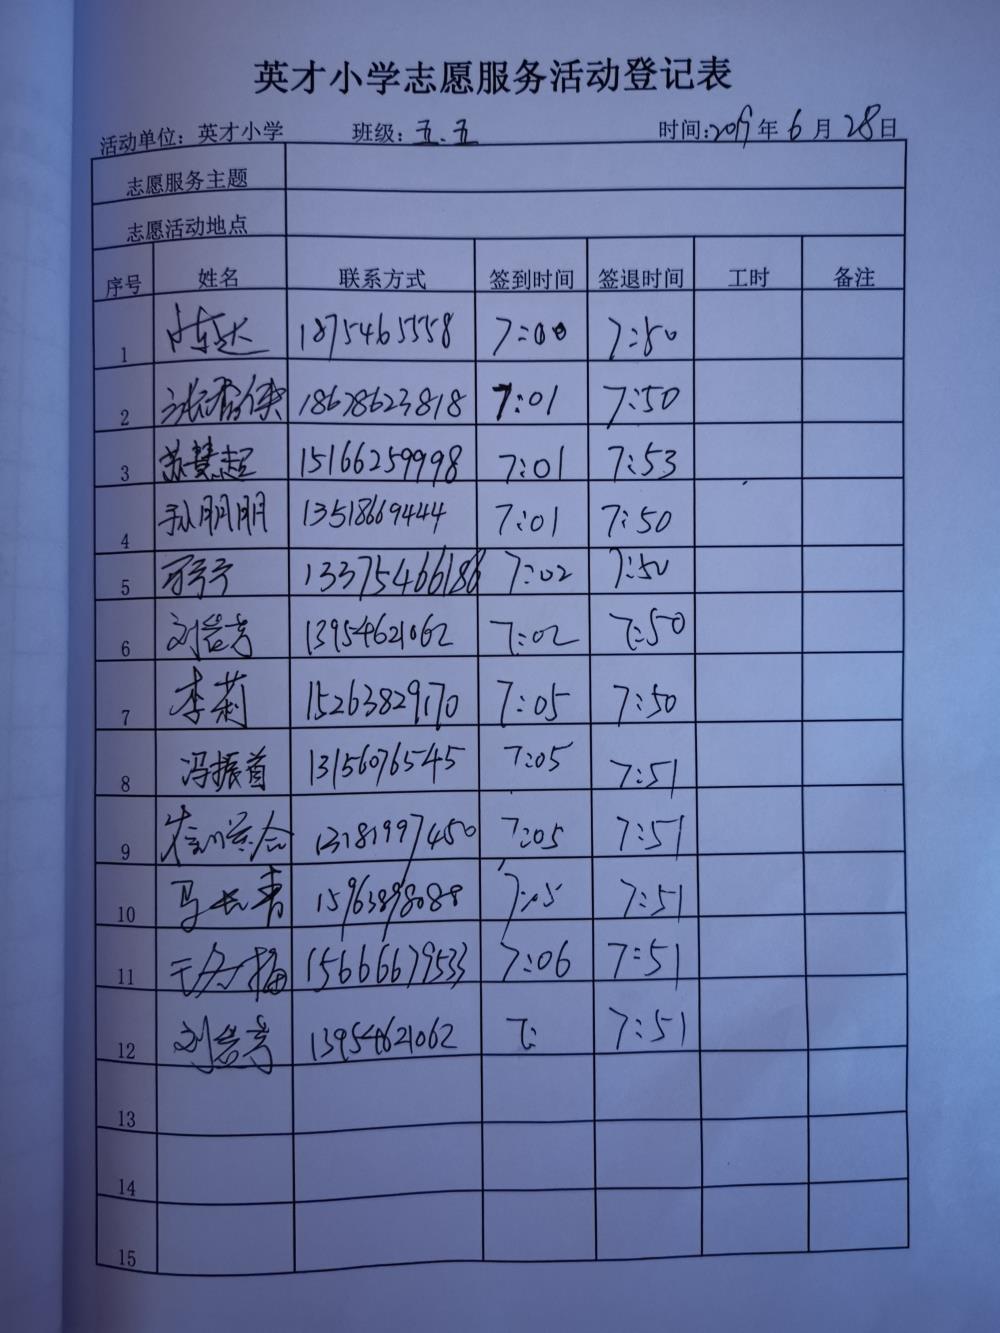 英才小学志愿服务活动登记表
活动单位：英才小学 班级：五.五 时间：2019年6月28日
志愿服务主题
志愿活动地点
序号 姓名 联系方式 签到时间 签退时间 工时 备注
1 陈达 1875465558 7:00 7:50
2 18678623818 7:01 7:50
3 苏慧超 15166259998 7:01 7:53
4 孙朋朋 13518669444 7:01 7:50
5 13375466186 7:02 7:50
6 13954621062 7:02 7:50
7 李莉 15263829170 7:05 7:50
8 冯振首 13156076545 7:05 7:51
9 13181997450 7:05 7:51
10 马长青 15963898088 7:05 7:51
11 15666679533 7:06 7:51
12 13954621062 7: 7:51
13
14
15